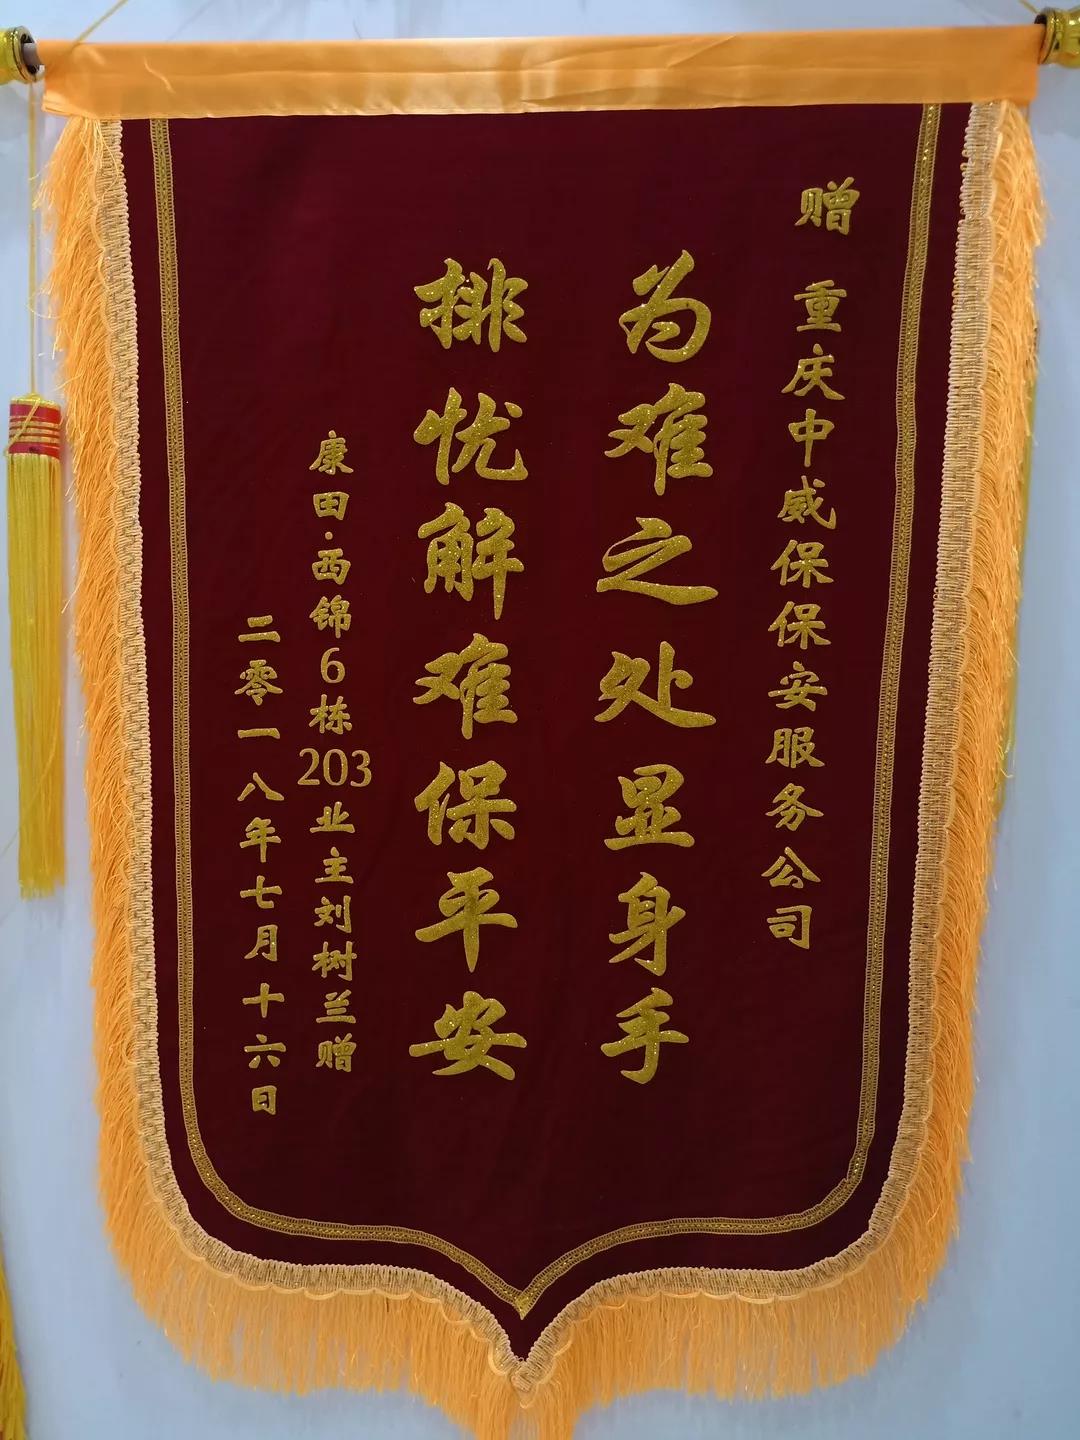 赠 重庆中威保保安服务公司
为难之处显身手
排忧解难保平安
康田·西锦6栋203业主刘树兰赠
二零一八年七月十六日